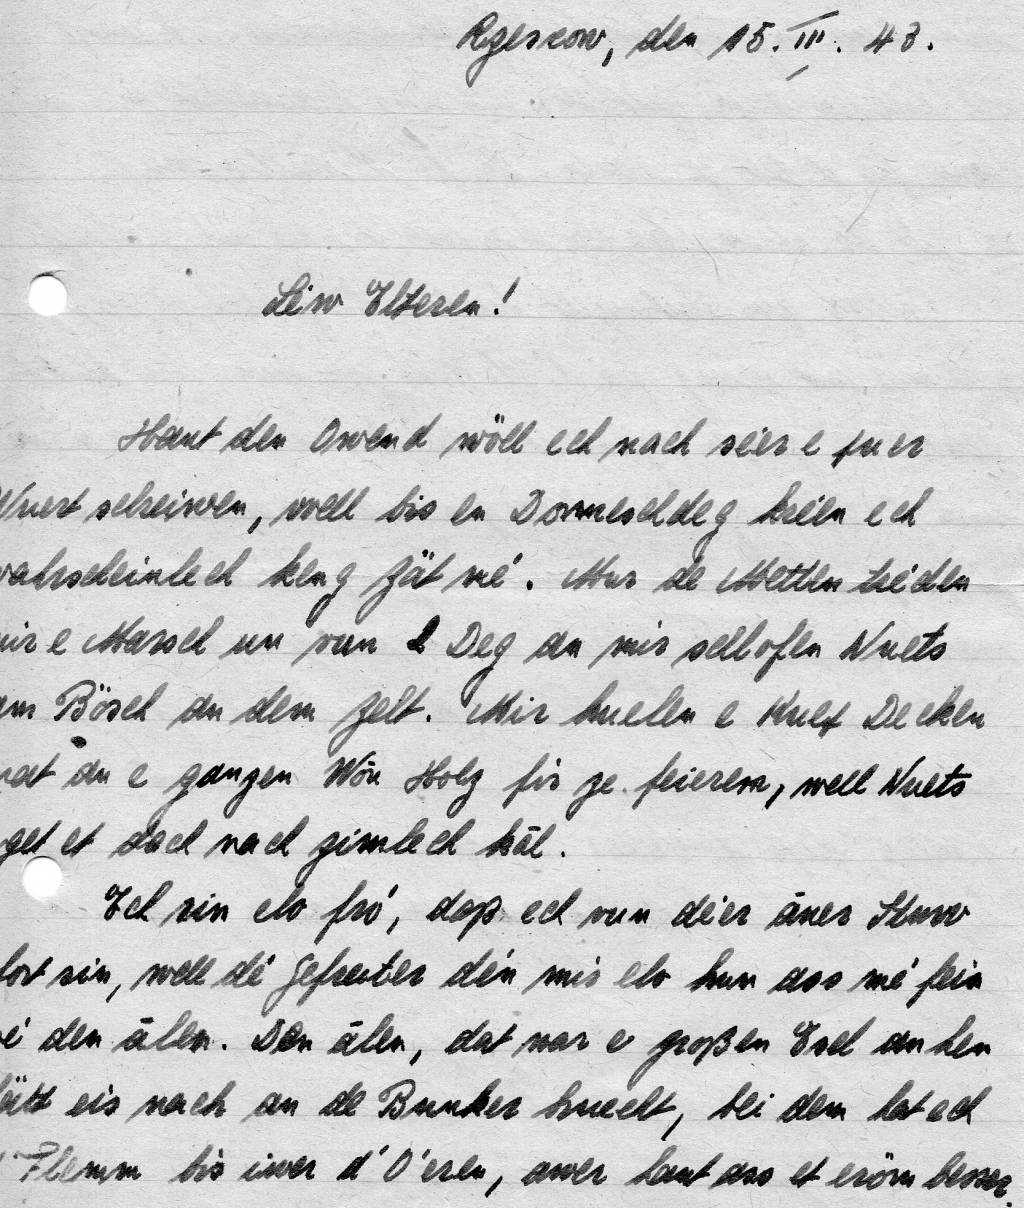 Rzeszow, den 15. III. 43.
Léiw Elteren!
Haut den Owend wöll ech nach séier e puer
Wuert schreiwen, well bis en Donneschdeg kréien ech
wahrscheinlech keng Zäit mé. Mur de Metten trieden
mir e Marsch un vun 2 Deg an mir schlofen Nuets
am Bösch an dem Zelt. Mir huelen e Koef Decken
mat an e ganzen Won Holz fir ze feieren, well Nuets
get et dach nach zimlech kāl.
Ech sin elo fró, dass ech vun déier āner Stuw
fort sin, well dé Gefreiter dén mir elo hun ass mé fein
wé den ālen. Den ālen, dat war e großen Esel an hen
hätt eis nach an de Bunker bruecht, bei dem hat ech
d'Flemm bis iwer d'O'eren, awer haut ass et eröm besser.